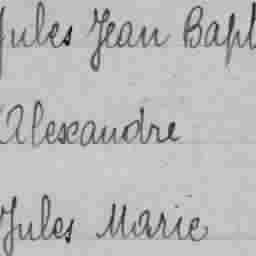 Jules Jean Bapt
Alexandre
Jules Marie